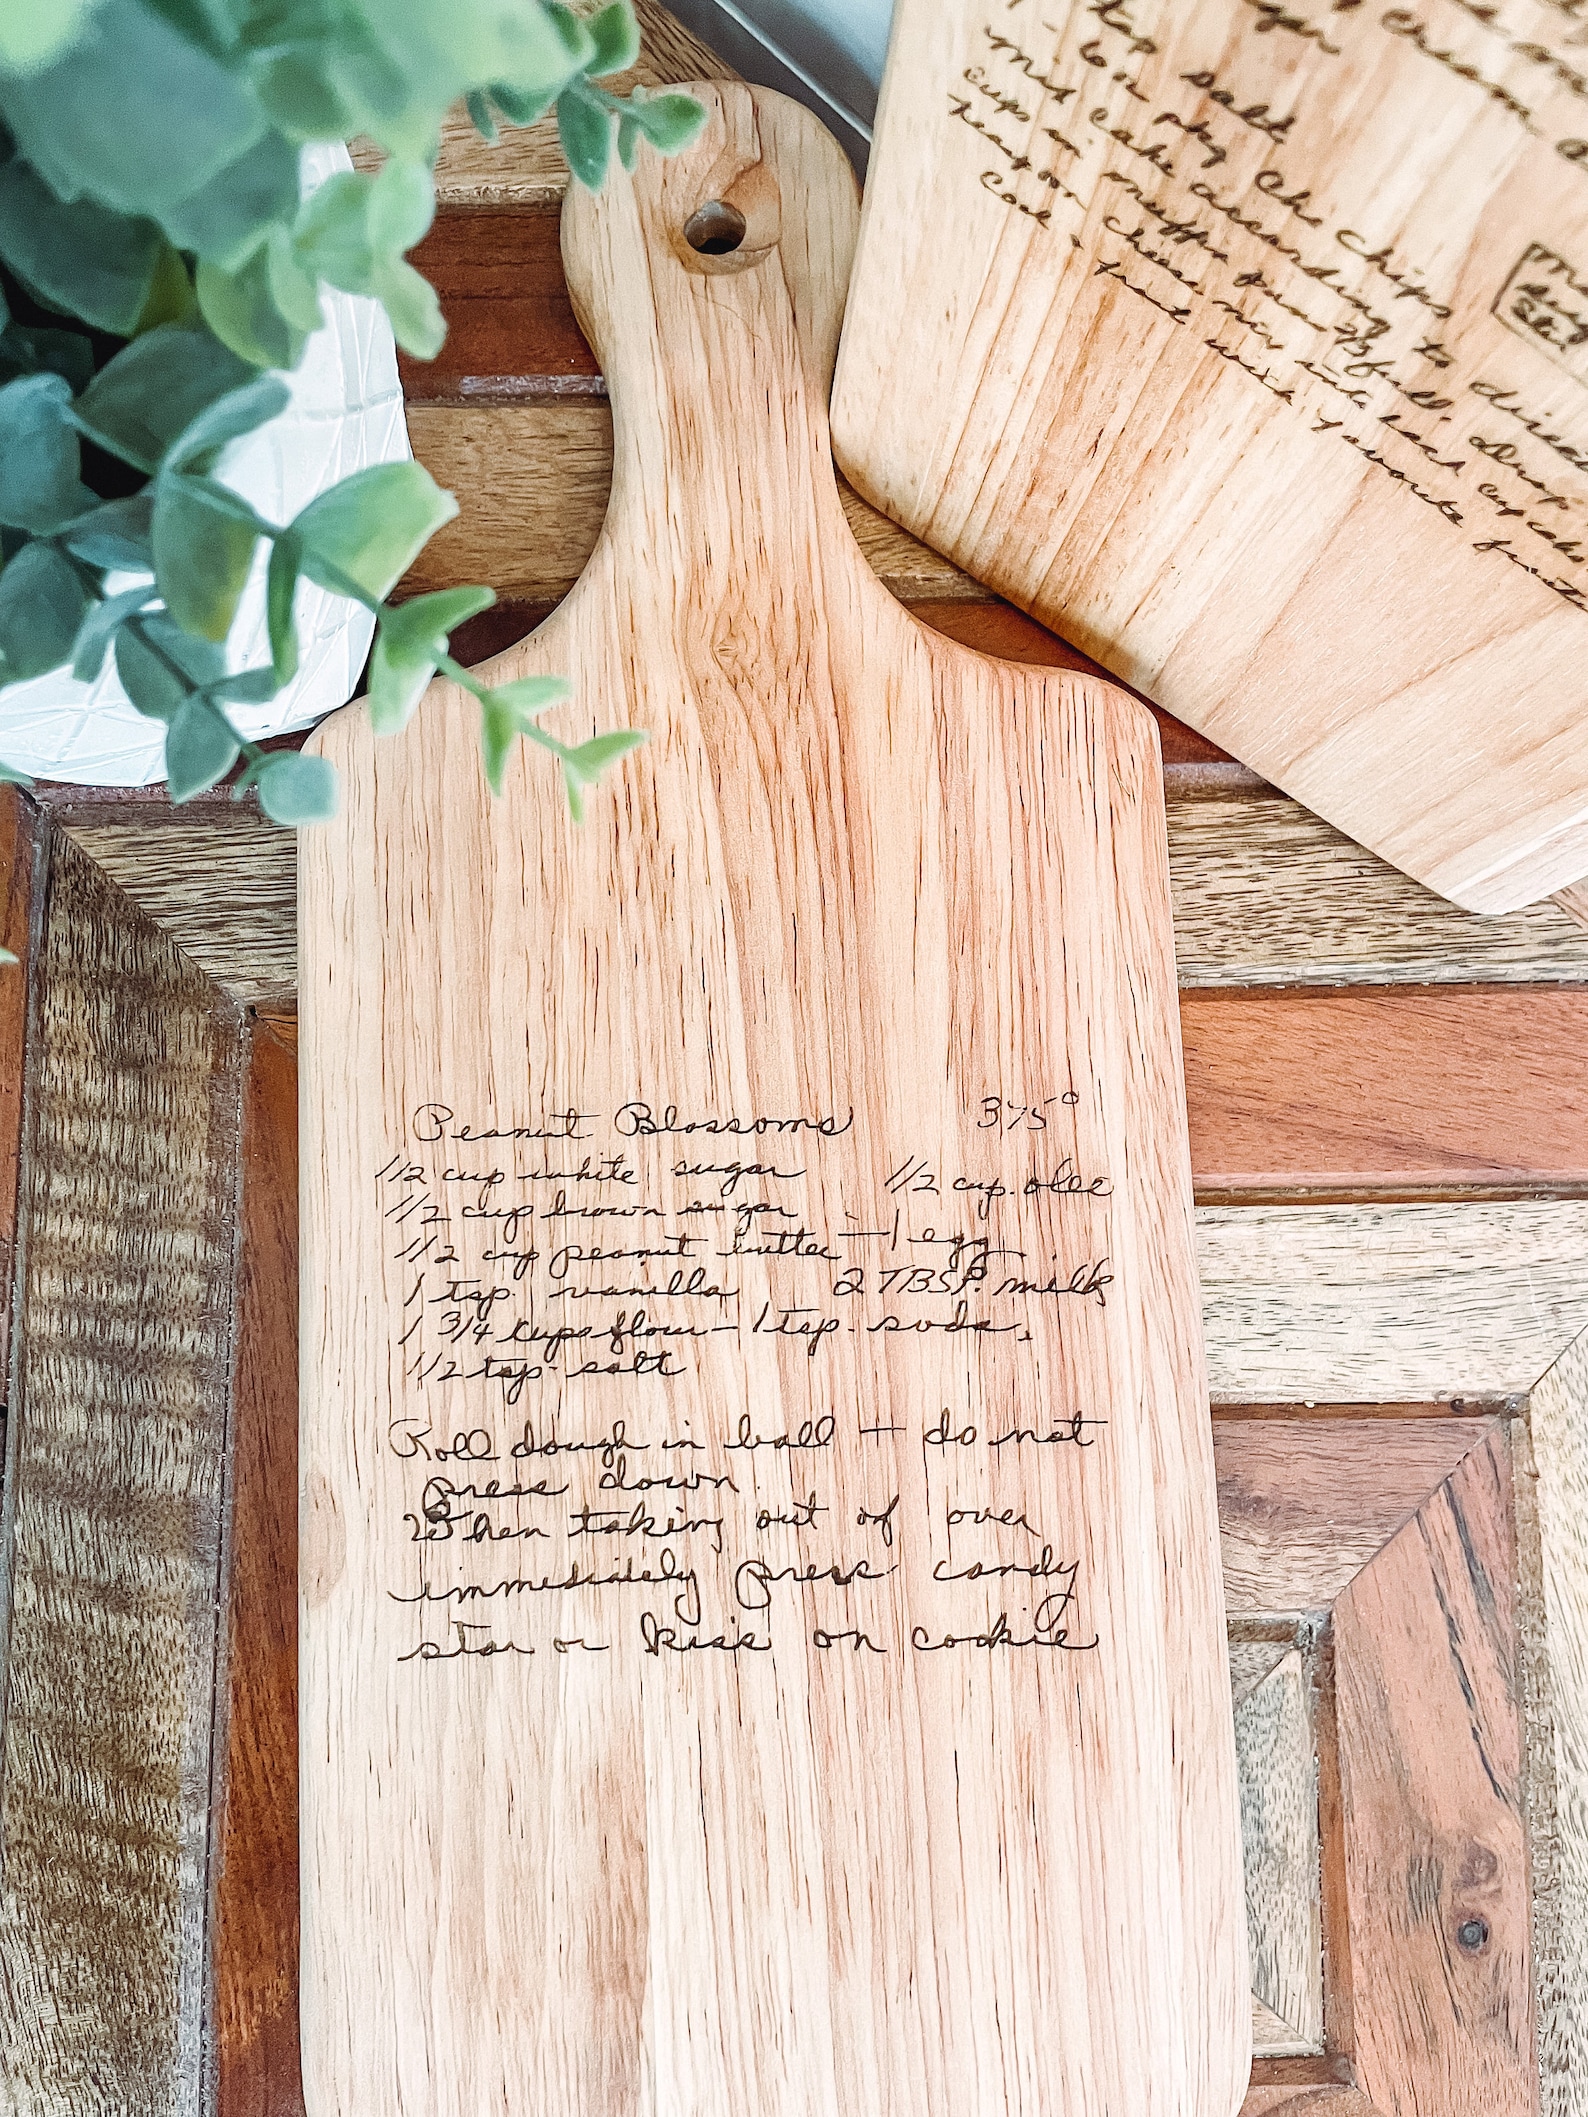 Peanut Blossoms 375°
1/2 cup white sugar 1/2 cup. oleo
1/2 cup brown sugar
1/2 cup peanut butter — 1 egg
1 tsp. vanilla 2 TBSP. milk
1 3/4 cups flour — 1 tsp. soda.
1/2 tsp. salt
Roll dough in ball + do not
press down
When taking out of oven
immediately press candy
star or kiss on cookie
tsp salt
1-6 oz pkg Choc Chips
Mix cake according to
cups in muffin pans full. Drop
cheese mix into each cup cake
Cool &
frost with favorite